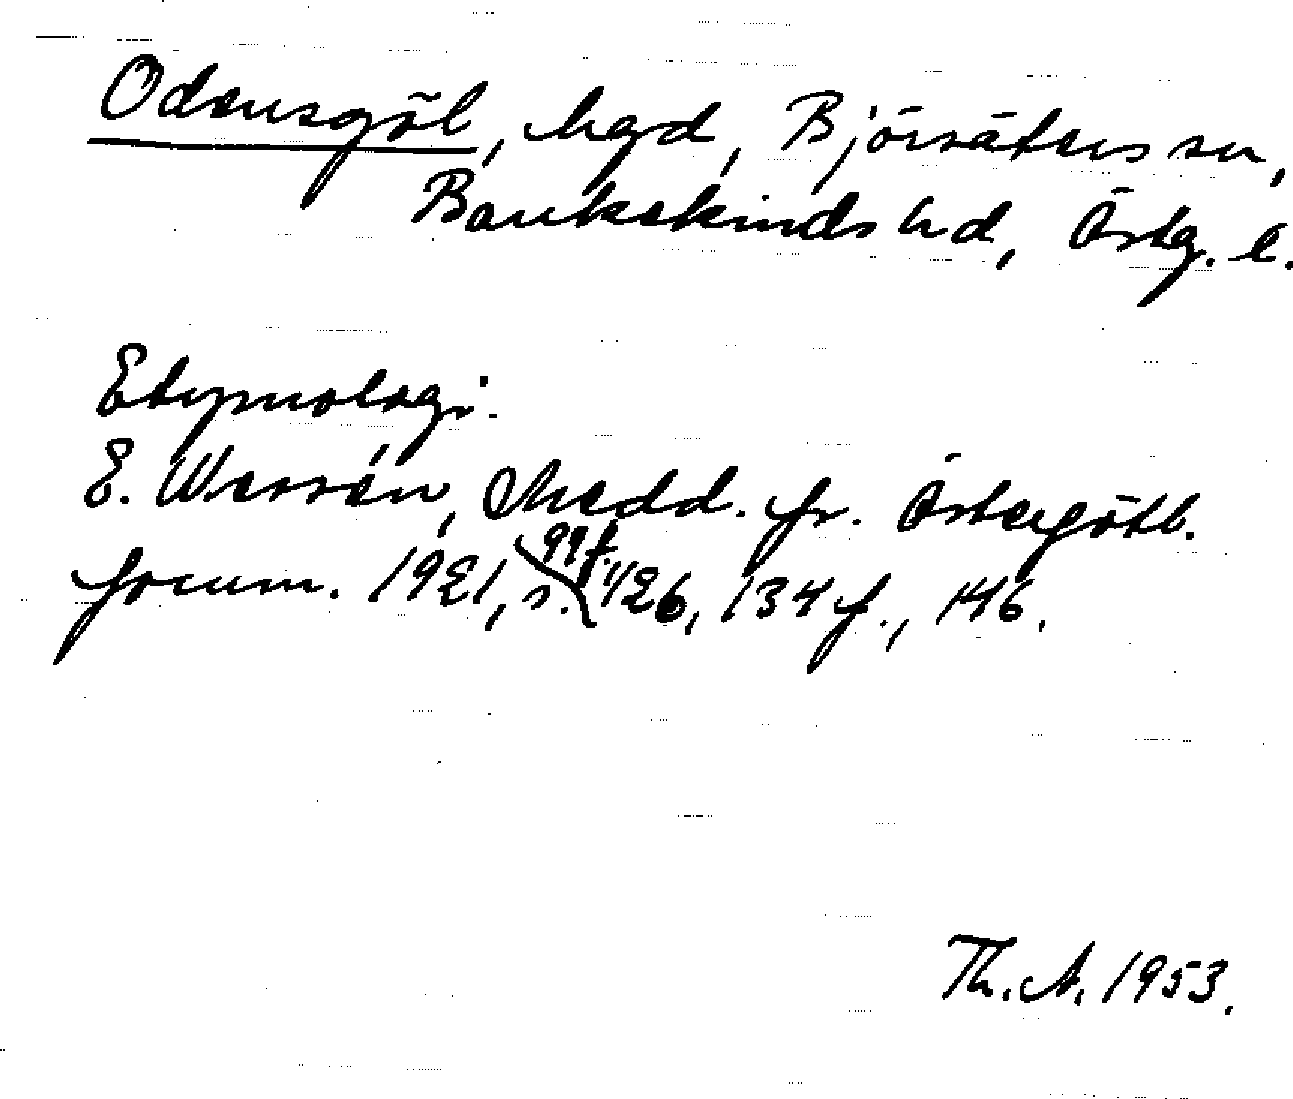 Odensgöl, hgd, Björsäters sn,
Bankekinds hd, Östg. l.
Etymologi:
E. Wessén, Medd. fr. Östergötl.
fornm. 1921, s. 99 f., 126, 134 f., 146.
Th. A. 1953.